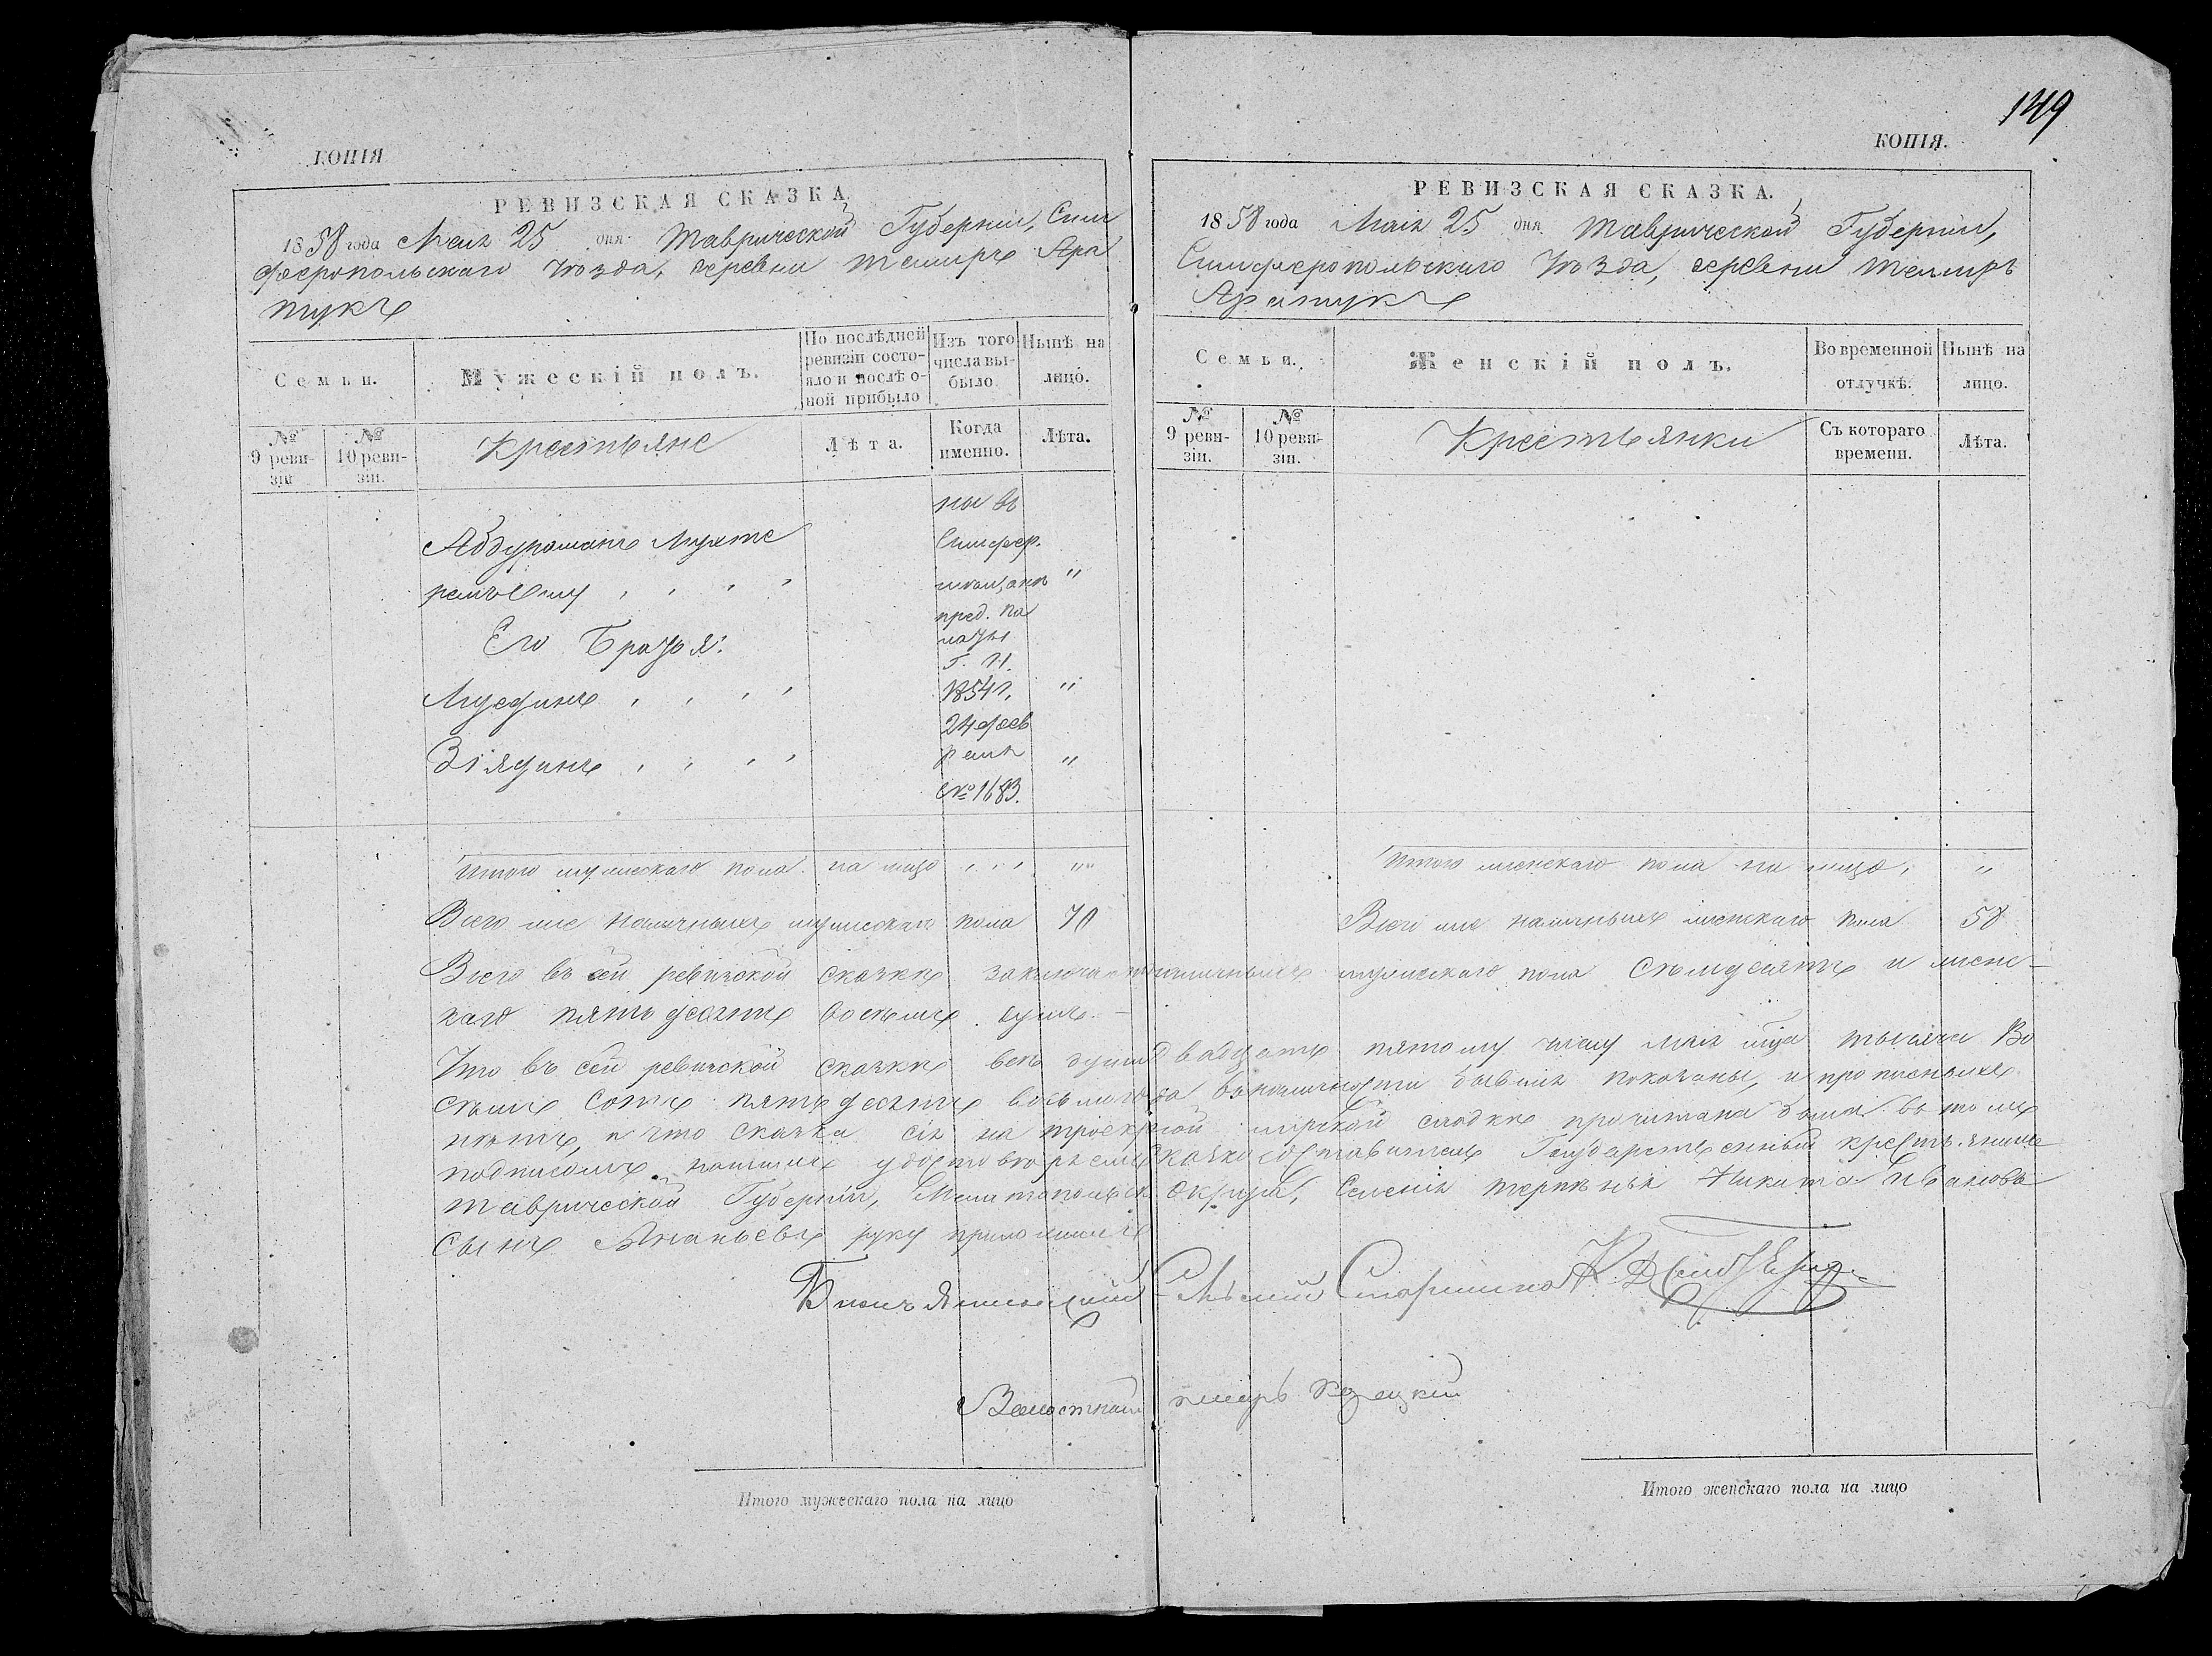 149
КОПІЯ
РЕВИЗСКАЯ СКАЗКА.
1858 года Маія 25 дня Таврической Губерніи, Сим
феропольскаго Уѣзда, деревни Темиръ Ара
тукъ
Семьи.
Мужескій полъ.
По послѣдней ревизіи состояло и послѣ оной прибыло
Изъ того числа выбыло
Нынѣ на лицо.
№ 9 ревизіи
№ 10 ревизіи.
Крестьяне
Лѣта.
Когда именно.
Лѣта.
ны въ
Абдураманъ Мухте
Симфер.
ремъ Оглу
мѣщане "
пред. Па
Его Братья:
латы
Г. И.
Мусединъ
1854 г. "
24 фев
Зіядинъ
раля "
№ 1683.
Итого мужескаго пола на лицо "
Всего же наличныхъ мужескаго пола 70
КОПІЯ.
РЕВИЗСКАЯ СКАЗКА.
1858 года Маія 25 дня Таврической Губерніи,
Симферопольскаго Уѣзда, деревни Темиръ
Аратукъ
Семьи.
Женскій полъ.
Во временной отлучкѣ.
Нынѣ на лицо.
№ 9 ревизіи.
№ 10 ревизіи.
Крестьянки
Съ котораго времени.
Лѣта.
Итого женскаго пола на лицо, "
Всего же наличныхъ женскаго пола 58
Всего въ сей ревизской сказкѣ заключается наличныхъ мужескаго пола Семьдесятъ и женс-
каго пятьдесятъ восемь душъ.
Что въ сей ревизской сказкѣ всѣ души двадцать пятому числу Маія мца тысяча Во
семь Сотъ пятьдесятъ восьмого года въ наличности бывшія показаны, и прописныхъ
нѣтъ, и что сказка сія на мірской сходкѣ прочитана была въ томъ
подписомъ нашимъ удостовѣряемъ Сказкосоставитель Государственный крестьянинъ
Таврической Губерніи, Мелитопольск. Округа, Селенія Терпѣнья Никита Ивановъ
Сынъ Ананьевъ руку приложилъ
Сельскій Старшина
Волостной писарь
Итого мужескаго пола на лицо
Итого женскаго пола на лицо